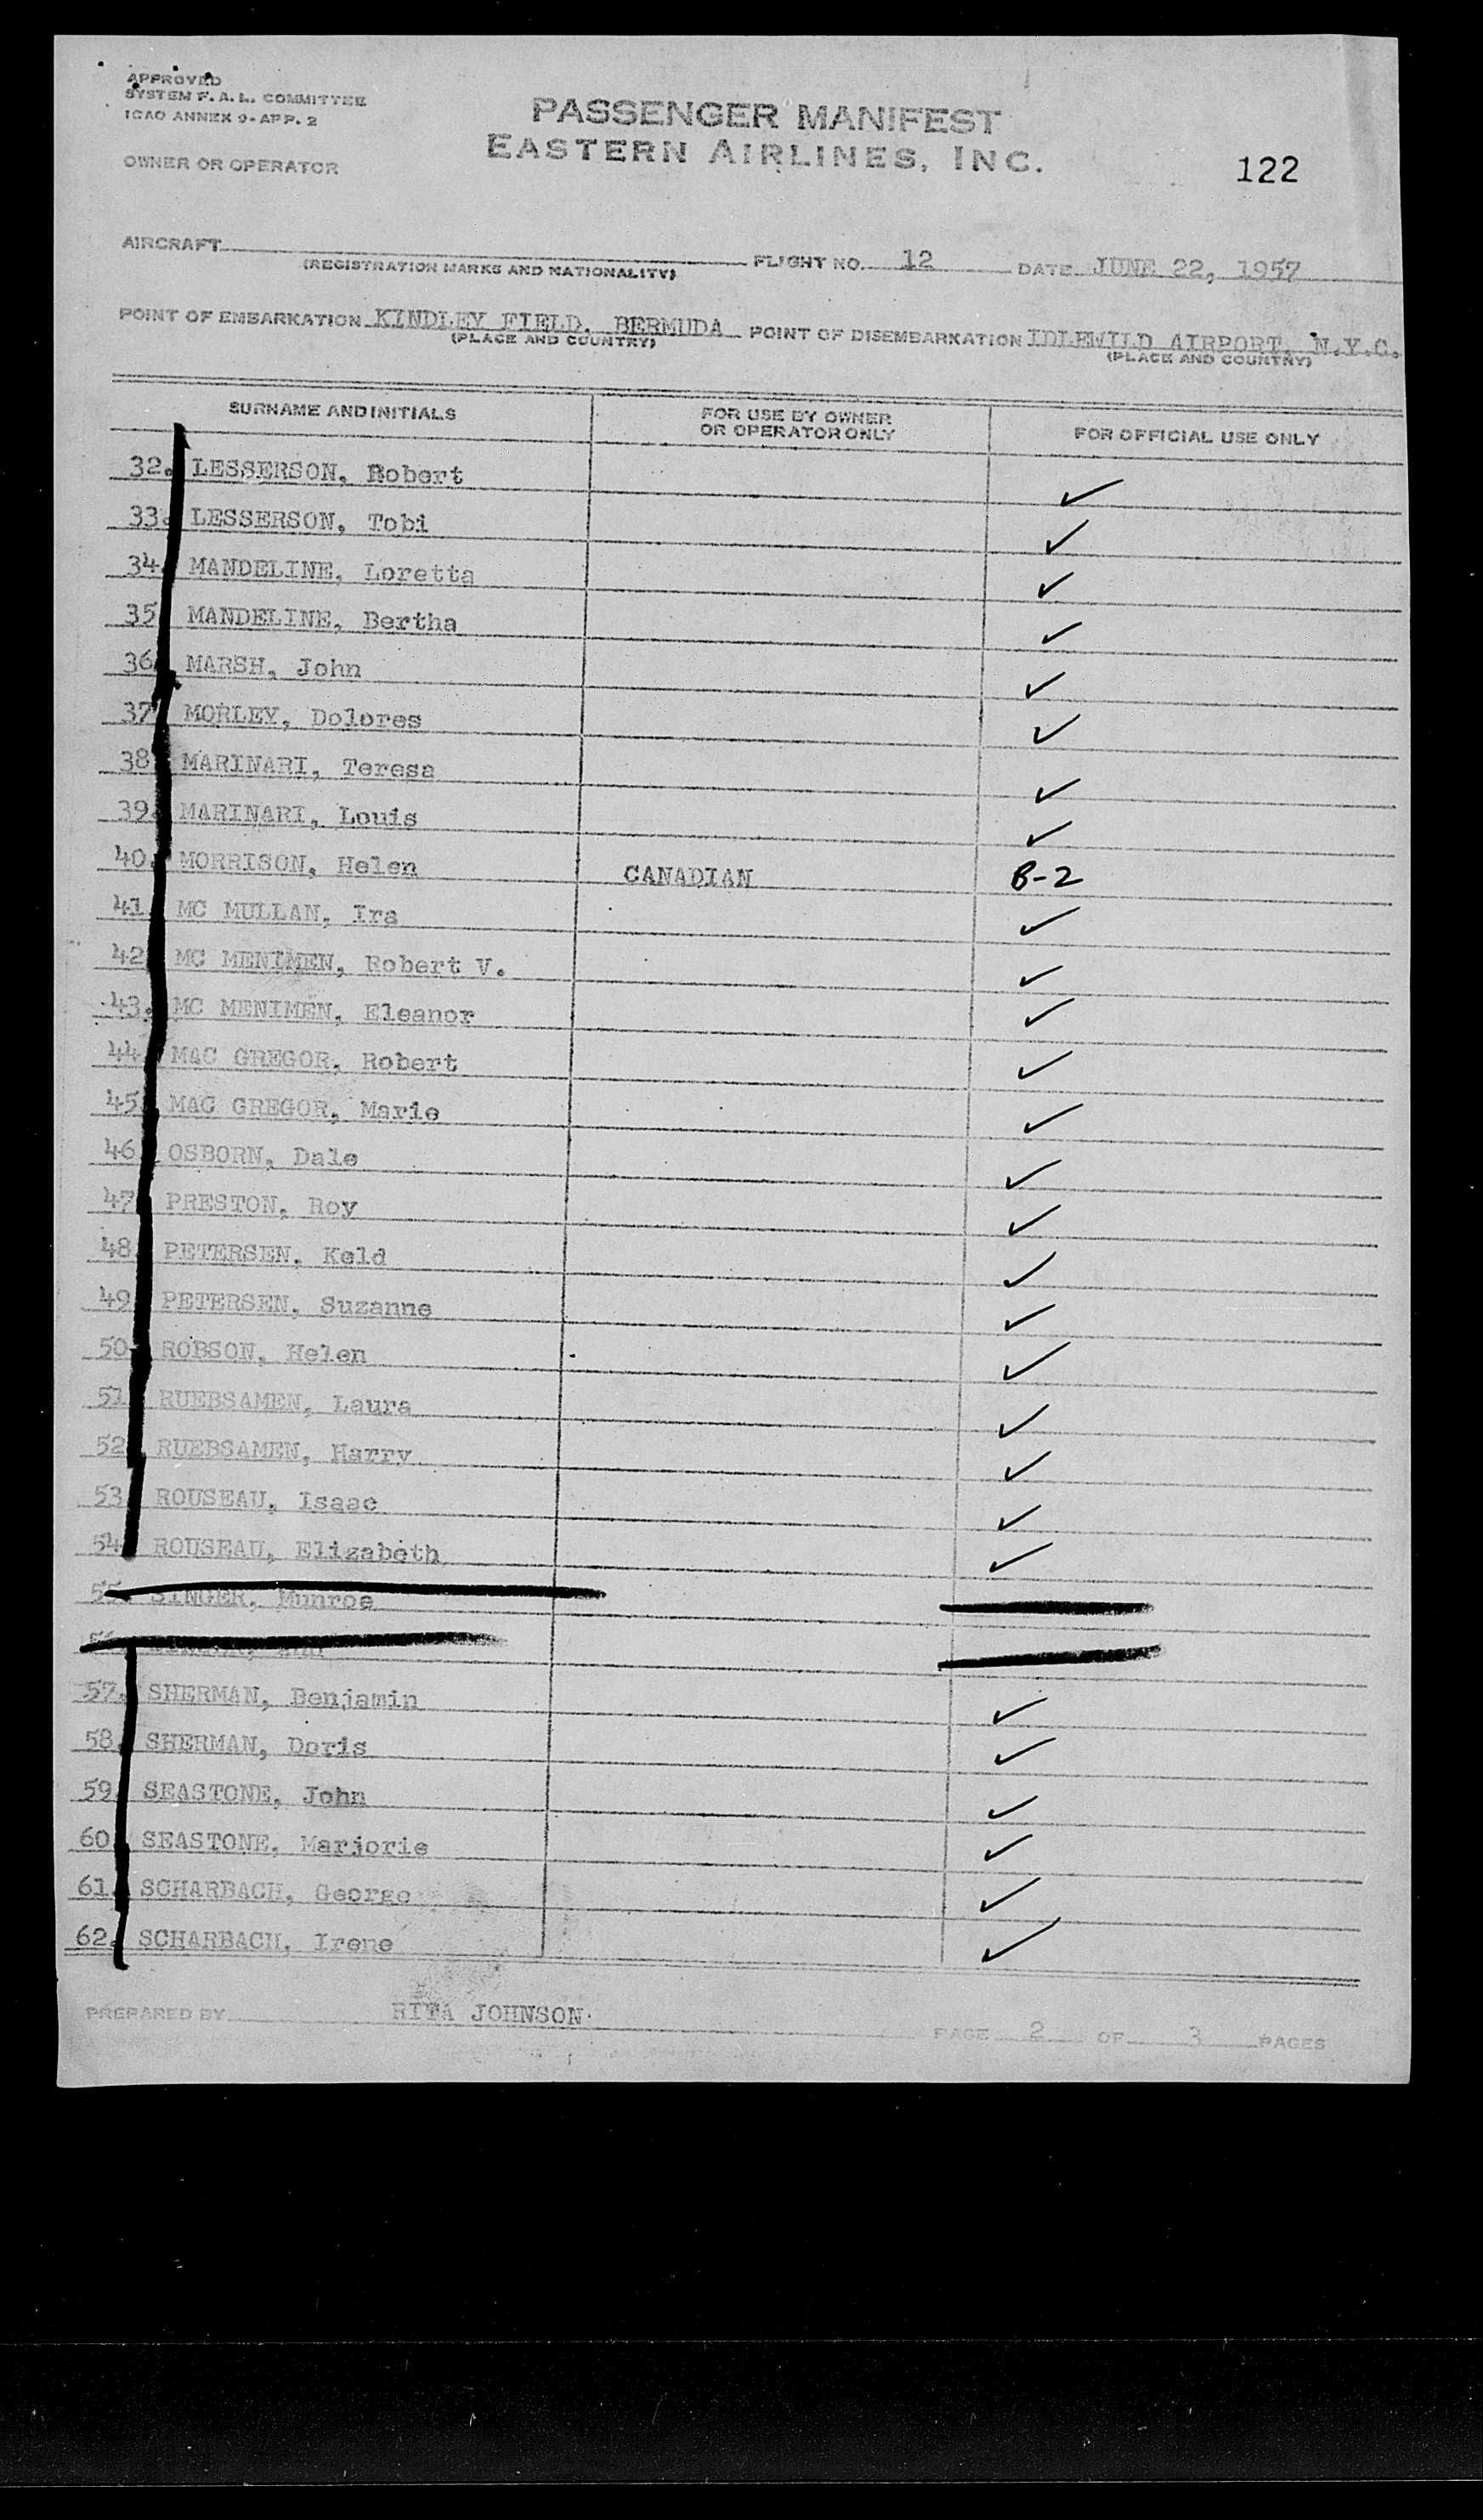 APPROVED
SYSTEM F. A. L. COMMITTEE
ICAO ANNEX 9-APP. 2
OWNER OR OPERATOR
PASSENGER MANIFEST
EASTERN AIRLINES, INC.
122
AIRCRAFT FLIGHT NO. 12 DATE JUNE 22, 1957
(REGISTRATION MARKS AND NATIONALITY)
POINT OF EMBARKATION KINDLEY FIELD, BERMUDA POINT OF DISEMBARKATION IDLEWILD AIRPORT, N.Y.C.
(PLACE AND COUNTRY) (PLACE AND COUNTRY)
SURNAME AND INITIALS FOR USE BY OWNER OR OPERATOR ONLY FOR OFFICIAL USE ONLY
32. LESSERSON, Robert ✓
33. LESSERSON, Tobi ✓
34. MANDELINE, Loretta ✓
35. MANDELINE, Bertha ✓
36. MARSH, John ✓
37. MORLEY, Dolores ✓
38. MARINARI, Teresa ✓
39. MARINARI, Louis ✓
40. MORRISON, Helen CANADIAN B-2
41. MC MULLAN, Ira ✓
42. MC MENIMEN, Robert V. ✓
43. MC MENIMEN, Eleanor ✓
44. MAC GREGOR, Robert ✓
45. MAC GREGOR, Marie ✓
46. OSBORN, Dale ✓
47. PRESTON, Roy ✓
48. PETERSEN, Keld ✓
49. PETERSEN, Suzanne ✓
50. ROBSON, Helen ✓
51. RUEBSAMEN, Laura ✓
52. RUEBSAMEN, Harry ✓
53. ROUSEAU, Isaac ✓
54. ROUSEAU, Elizabeth ✓
55. SINGER, Munroe
56.
57. SHERMAN, Benjamin ✓
58. SHERMAN, Doris ✓
59. SEASTONE, John ✓
60. SEASTONE, Marjorie ✓
61. SCHARBACH, George ✓
62. SCHARBACH, Irene ✓
PREPARED BY RITA JOHNSON PAGE 2 OF 3 PAGES